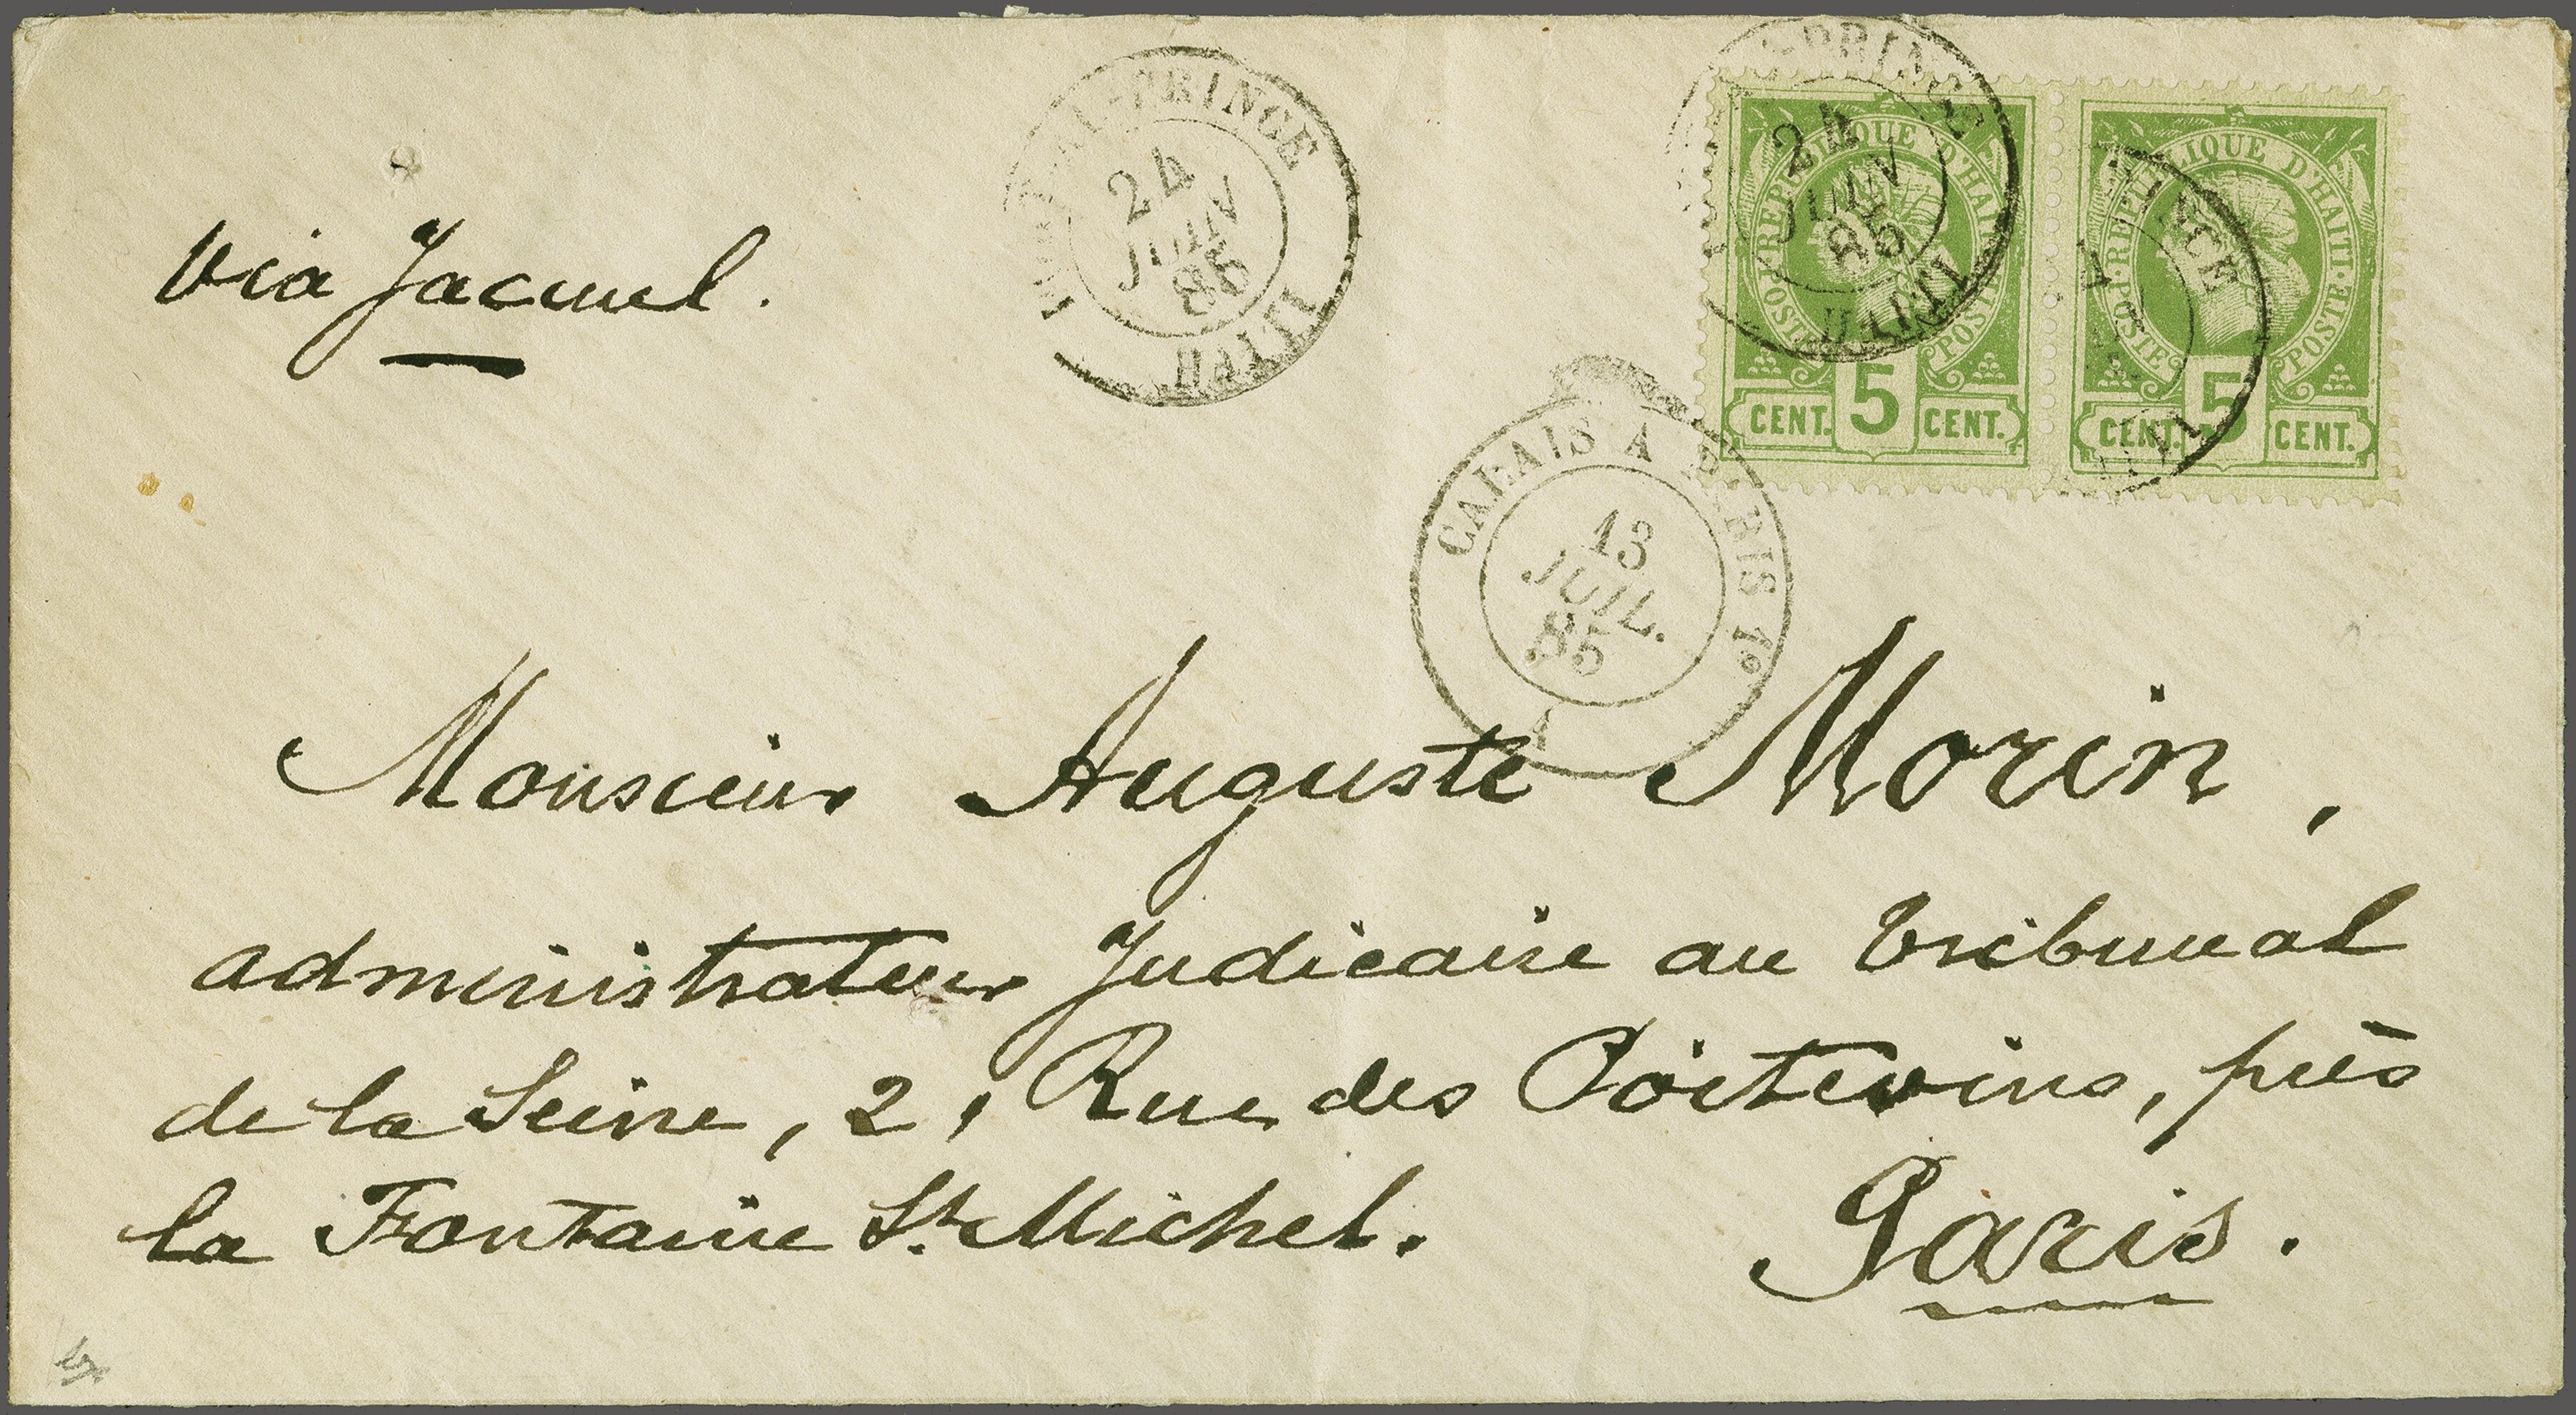 PORT-AU-PRINCE
24
JUIN
85
HAITI
PRINCE
24
JUIN
85
HAITI
REPUBLIQUE D'HAITI
POSTE POSTE
CENT. 5 CENT.
RINCE
REPUBLIQUE D'HAITI
POSTE POSTE
CENT. 5 CENT.
Via Jacmel.
CALAIS A PARIS 1º
13
JUIL.
85
A
Monsieur Auguste Morin,
administrateur Judicaire au Tribunal
de la Seine, 2, Rue des Poitevins, près
la Fontaine St. Michel. Paris.